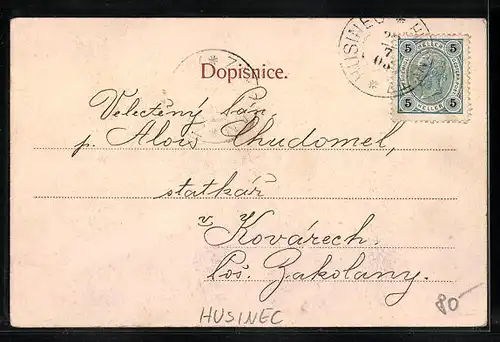 HUSINEC
5 5
HELLER
5 5
Dopisnice.
Veletěný Pán,
p. Alois Chudomel,
statkář
v
Kovárech.
Poš. Zakolany.
80-
HUSINEC